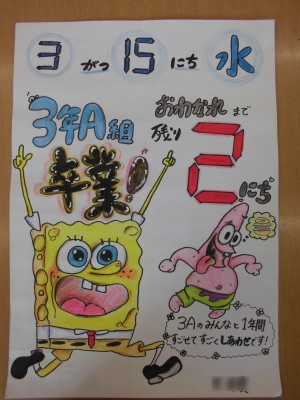 3がつ15にち水
3年A組
卒業!
おわかれまで
残り
2にち
3Aのみんなと1年間
すごせてすごくしあわせです!